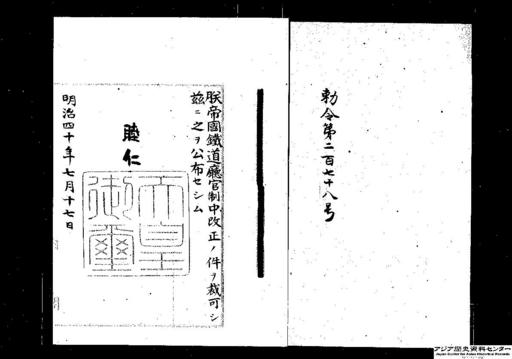 勅令第二百七十八号
朕帝國鐵道廳官制中改正ノ件ヲ裁可シ
茲ニ之ヲ公布セシム
睦仁
天皇
御璽
明治四十年七月十七日
アジア歴史資料センター
Japan Center for Asian Historical Records